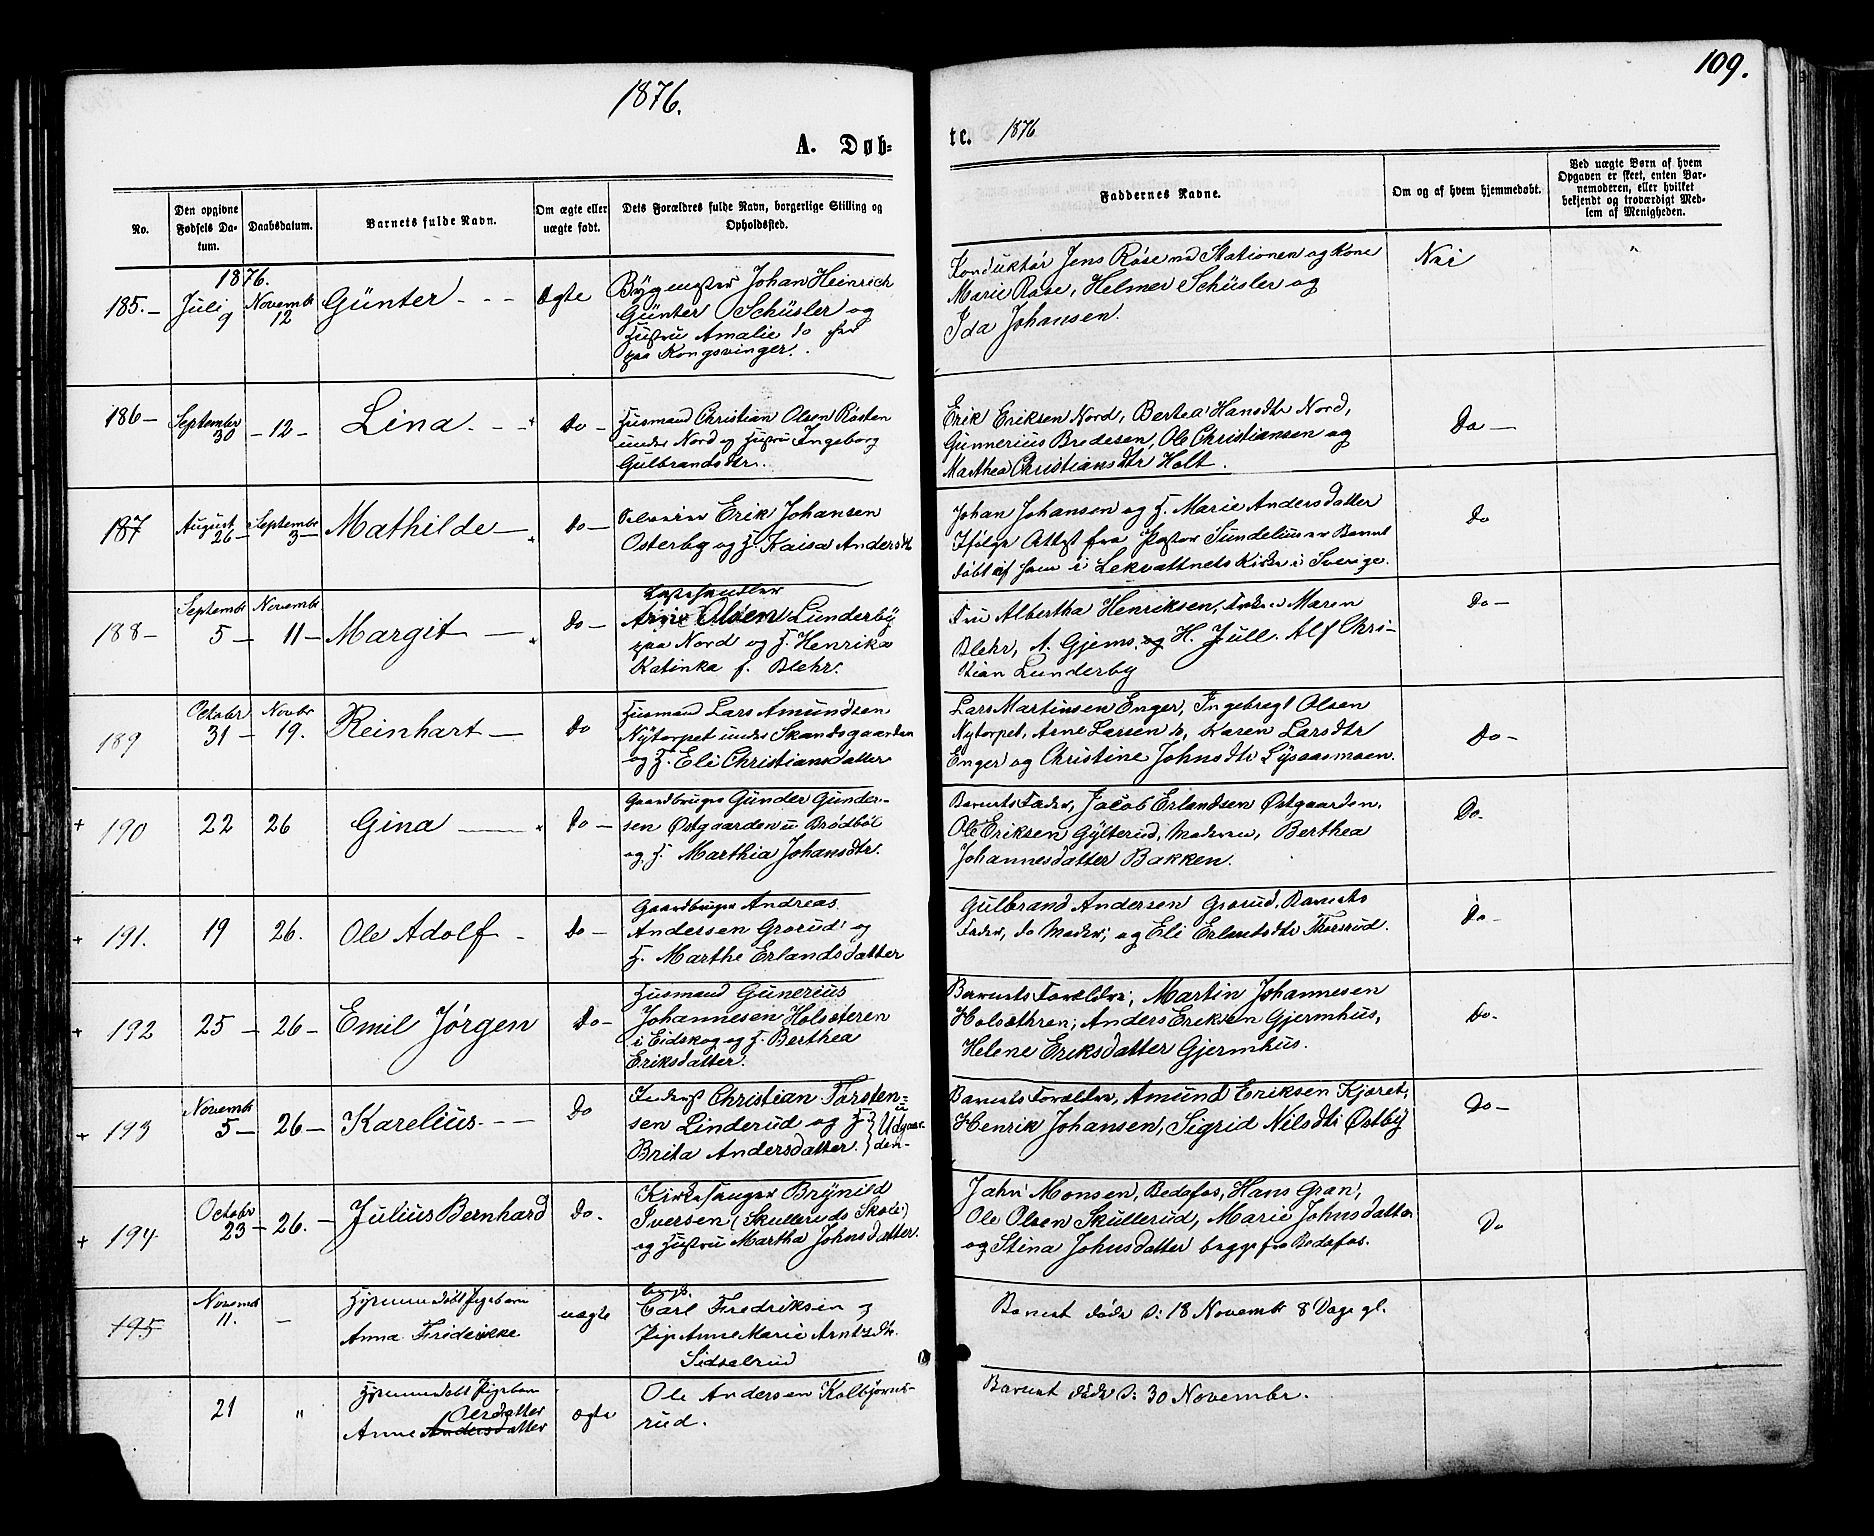 1876.
109.
A. Døb-
te. 1876
No.
Den opgivne Fødsels Da-tum.
Daabsdatum.
Barnets fulde Navn.
Om ægte eller uægte født.
Dets Forældres fulde Navn, borgerlige Stilling og Opholdssted.
Faddernes Navne.
Om og af hvem hjemmedøbt.
Ved uægte Børn af hvem
Opgaven er skeet, enten Bar-
nemoderen, eller hvilket
bekjendt og troværdigt Med-
lem af Menigheden.
1876.
185.- Juli 9 Novembr 12 Günter - - - Ægte
Johan Heinrich
Günter Schüsler og
Hustru Amalie do
paa Kongsvinger.
Konduktør Jens Rose Stationen og Kone
Marie Rose, Helmer Schüsler og
Ida Johansen.
Nei
"
186- September 30 -12- Lina - - - Do-
Husmand Christian Olsen Rasten
under Nord og Hustru Ingeborg
Gulbrandsdtr.
Erik Eriksen Nord, Berthea Hansdtr Nord,
Gunnerius Bredesen, Ole Christiansen og
Marthea Christiansdtr Holt.
Do-
187 August 26- Septembr 3- Mathilde- do-
Selveier Erik Johansen
Osterby og H. Kaisa Andersdtr
Johan Johansen og H. Marie Andersdatter
Ifølge Attest fra Pastor Sundelius er Barnet
døbt af ham i Lekvattnets Kirke i Sverige.
do
188- Septembr 5- Novembr 11- Margit- Do-
Landhandler
Arne Olsen Lunderby
paa Nord og H. Henrika
Katinka f. Blehr.
Fru Albertha Henriksen, Frøken Maren
Blehr, A. Gjems, og H. Jull. Alf Chri-
stian Lunderby
do-
189 Octobr 31- Novbr 19. Reinhart- Do
Husmand Lars Amundsen
Nytorpet under Skandsgaarden
og H. Eli Christiansdatter
Lars Martinsen Enger, Ingebregt Olsen
Nytorpet, Arne Larsen do, Karen Larsdtr
Enger og Christine Johnsdtr Lysaasmoen.
Do-
+ 190 22 26 Gina- Do-
Gaardbruger Günder Gunder-
sen Østgaarden u Brødbøl
og H. Marthia Johansdtr.
Barnets Fader, Jacob Erlandsen Østgaarden,
Ole Eriksen Gylterud, Moderen, Berthea
Johannesdatter Bakken.
Do-
+ 191. 19 26. Ole Adolf- Do-
Gaardbruger Andreas
Andersen Grorud og
H. Marthe Erlandsdatter
Gulbrand Andersen Grorud, Barnets
Fader, do Moder; og Eli Erlandsdtr Thorsrud.
Do-
+ 192 25- 26- Emil Jørgen Do-
Husmand Gunerius
Johannesen Holsæteren
i Eidskog og H. Berthea
Eriksdatter.
Barnets Forældre, Martin Johannesen
Holsæthren; Anders Eriksen Gjermhus,
Helene Eriksdatter Gjermhus.
Do-
+ 193 Novembr 5- 26- Karelius- - - Do
Inderst Christian Torsten-
sen Linderud og H. } u Udgaar-
Brita Andersdatter. } den-
Barnets Forældre, Amund Eriksen Kjøret,
Henrik Johansen, Sigrid Nilsdtr Østby
Do-
+ 194 Octobr 23- 26.- Julius Bernhard Do.
Kirkesanger Brynild
Iversen (Skulleruds Skole)
og Hustru Martha Johnsdatter.
Jahn Monsen, Bedafos, Hans Gran,
Ole Olsen Skullerud, Marie Johnsdatter
og Stina Johnsdatter begge fra Bedafos.
Do
195 Novembr 11. - Hjemmedøbt Pigebarn
Anna Fredrikke uægte
Ungk.
Carl Fredriksen og
Pige Anne Marie Arntzdtr.
Sidselrud
Barnet døde d: 18 Novembr 8 Dage gl.
21 " Hjemmedøbt Pigebarn
Olsdatter
Anne Andersdatter ægte
Ole Andersen Kolbjørns-
rud.
Barnet døde d: 30 Novembr.